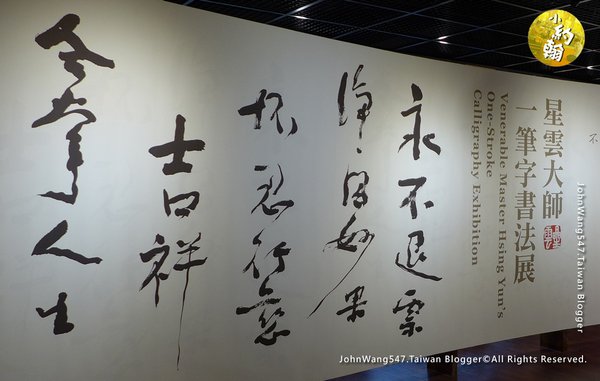 小約翰
不
星雲大師
一筆字書法展
Venerable Master Hsing Yun's
One-Stroke
Calligraphy Exhibition
永不退票
淨因妙果
懷忍行慈
吉祥
合掌人生
JohnWang547.Taiwan Blogger
JohnWang547.Taiwan Blogger©All Rights Reserved.